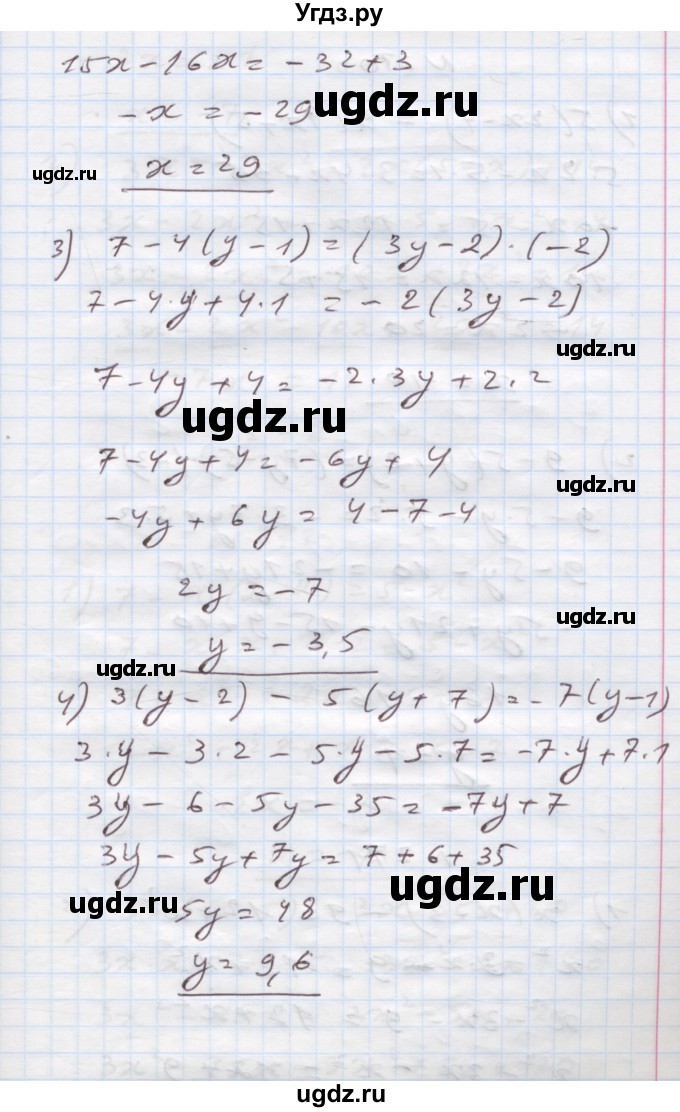 Угдз.ру
15x - 16x = - 32 + 3
- x = - 29
ugdz.ru
ugdz.ru
x = 29
3) 7 - 4 (y - 1) = ( 3y - 2) · (- 2)
7 - 4·y + 4·1 = - 2 ( 3y - 2)
ugdz.ru
7 - 4y + 4 = - 2·3y + 2·2
ugdz.ru
7 - 4y + 4 = - 6y + 4
ugdz.ru
- 4y + 6y = 4 - 7 - 4
2y = - 7
ugdz.ru
y = - 3,5
ugdz.ru
4) 3(y - 2) - 5 (y + 7) = - 7(y - 1)
3·y - 3·2 - 5·y - 5·7 = -7·y + 7·1
3y - 6 - 5y - 35 = -7y + 7
3y - 5y + 7y = 7 + 6 + 35
ugdz.ru
ugdz.ru
5y = 48
y = 9,6
ugdz.ru